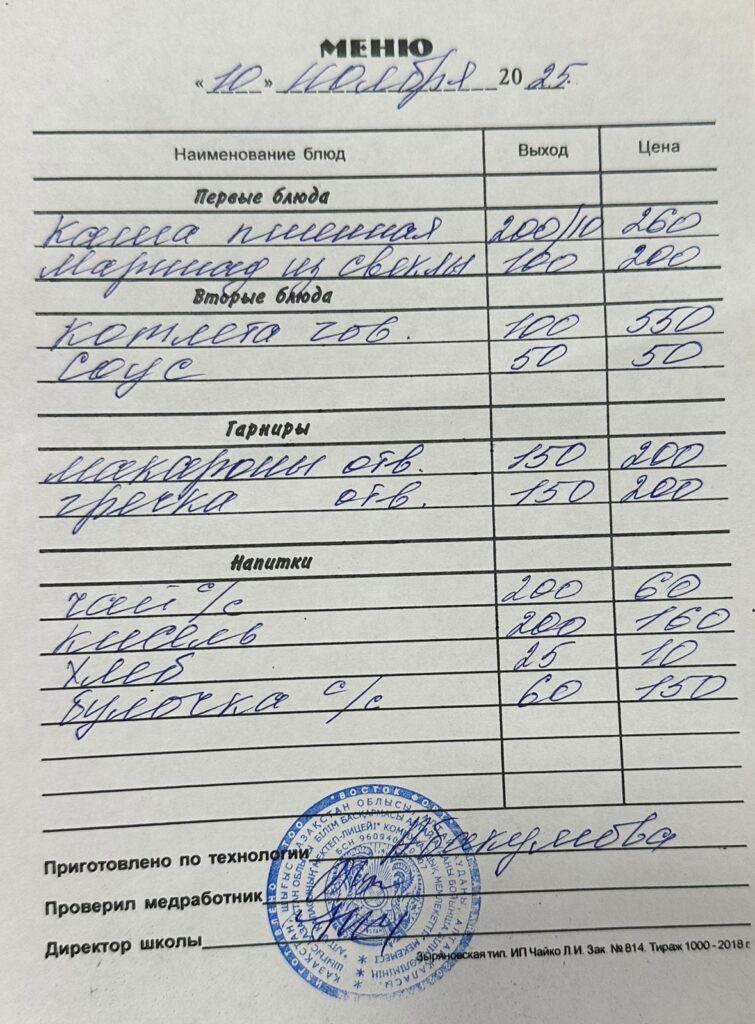 МЕНЮ
« 10 » ноября 2025.
Наименование блюд Выход Цена
Первые блюда
Каша пшенная 200/10 260
Маринад из свеклы 100 200
Вторые блюда
Котлета гов. 100 550
Соус 50 50
Гарниры
макароны отв. 150 200
гречка отв. 150 200
Напитки
чай с/с 200 60
кисель 200 160
хлеб 25 10
булочка с/с 60 150
Приготовлено по технологии
Проверил медработник
Директор школы
Зыряновская тип. ИП Чайко Л.И. Зак. № 814. Тираж 1000 - 2018 г.